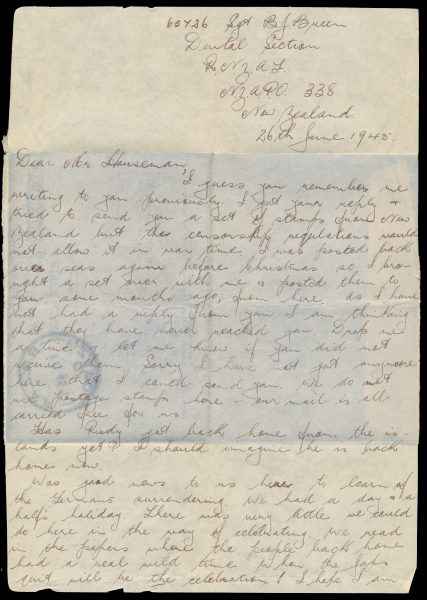 65426 Sgt B J Breen
Dental Section
R.N.Z.A.F.
N.Z.A.P.O. 338
New Zealand.
26th June 1945.
Dear Mr Hauseman,
I guess you remember me
writing to you previously I got your reply &
tried to send you a set of stamps from New
Zealand but the censorship regulations would
not allow it in war time. I was posted back
over seas again before Christmas so I bro-
ught a set over with me & posted them to
you some months ago, from here, as I have
not had a reply from you I am thinking
that they have never reached you. Drop me
a line & let me know if you did not
receive them. Sorry I have not got anymore
here that I could send you, we do not
use postage stamps here - our mail is all
carried free for us.
Has Rudy got back home from the is-
lands yet? I should imagine he is back
home now.
Was good news to us here to learn of
the Germans surrendering. We had a day & a
half's holiday. There was very little we could
do here in the way of celebrating. We read
in the papers where the people back home
had a real wild time. When the Japs
quit will be the celebration! I hope I am